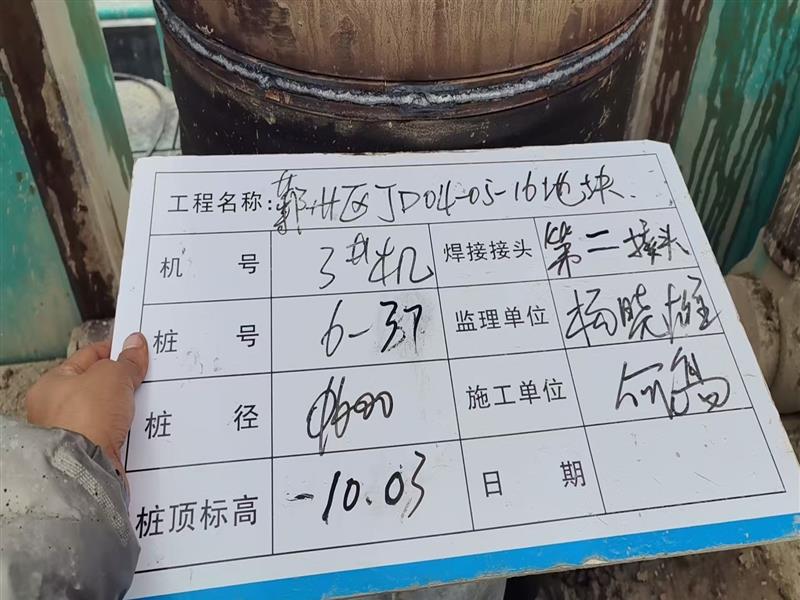 工程名称:鄞州区JD04-05-16地块
机 号 3#机 焊接接头 第二接头
桩 号 6-37 监理单位 杨晓雄
桩 径 Φ600 施工单位
桩顶标高 -10.03 日 期